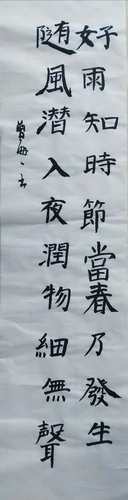 好雨知時節當春乃發生
随風潜入夜潤物細無聲